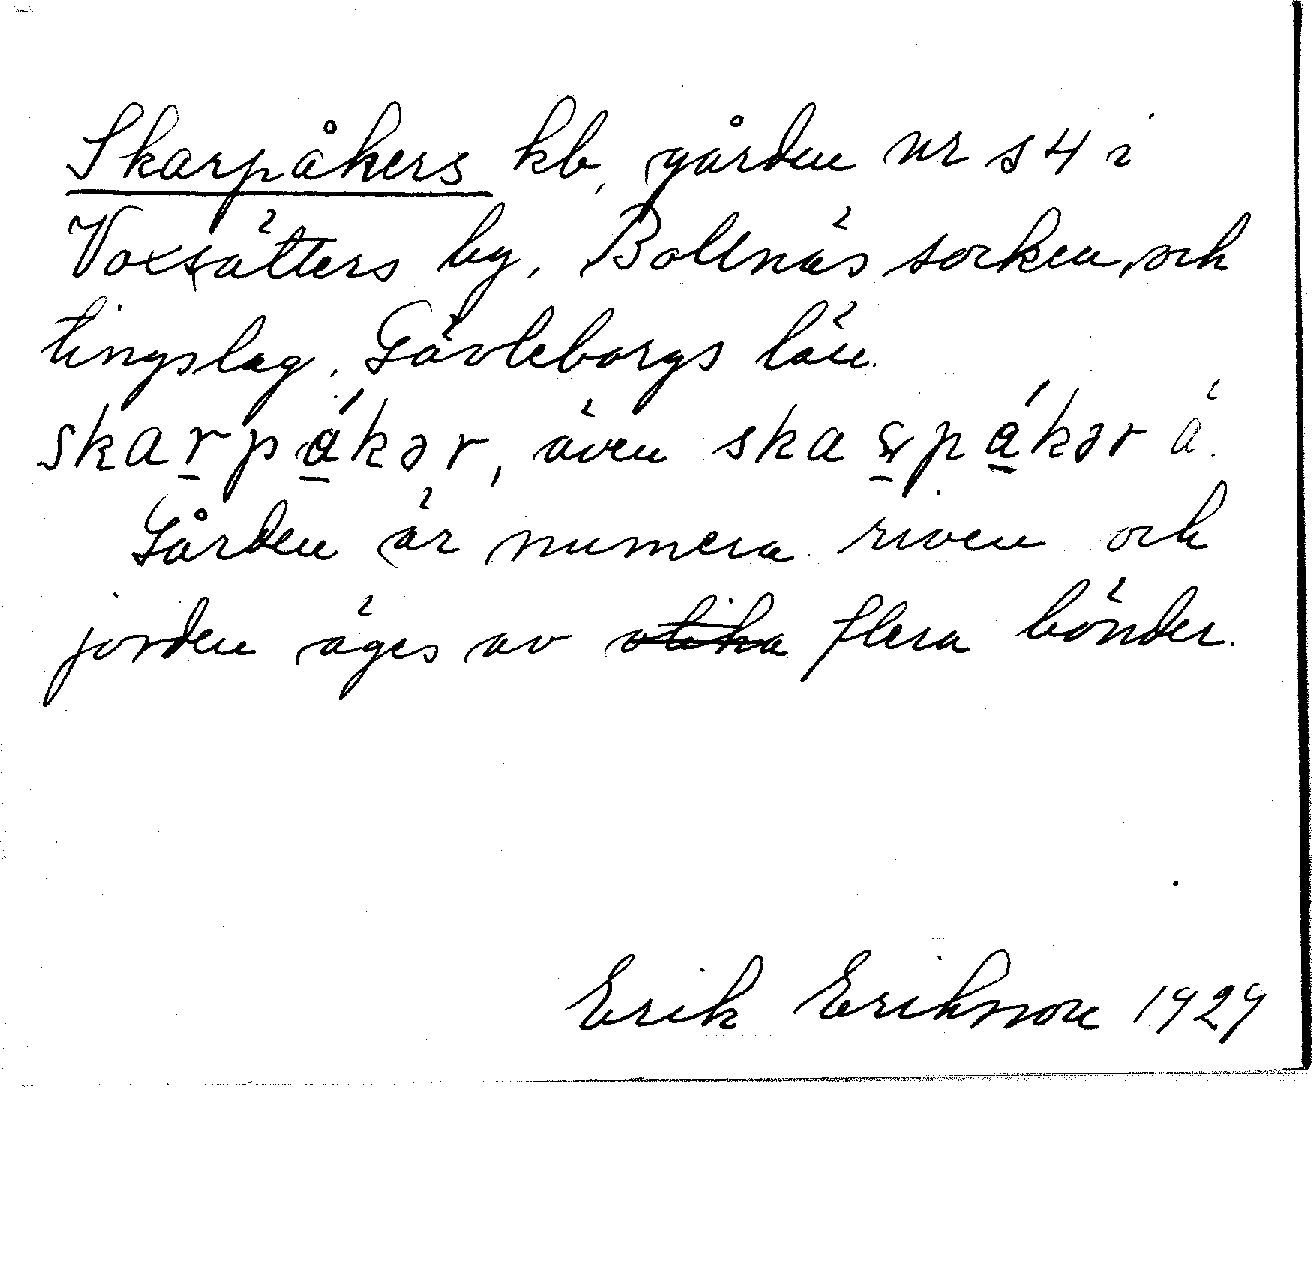 Skarpåkers kb, gården nr s 4 i
Voxsätters by, Bollnäs socken och
tingslag, Gävleborgs län.
skarpákər, även ska pákər
Gården är numera riven och
jorden äges av ~~olika~~ flera bönder.
Erik Eriksson 1929